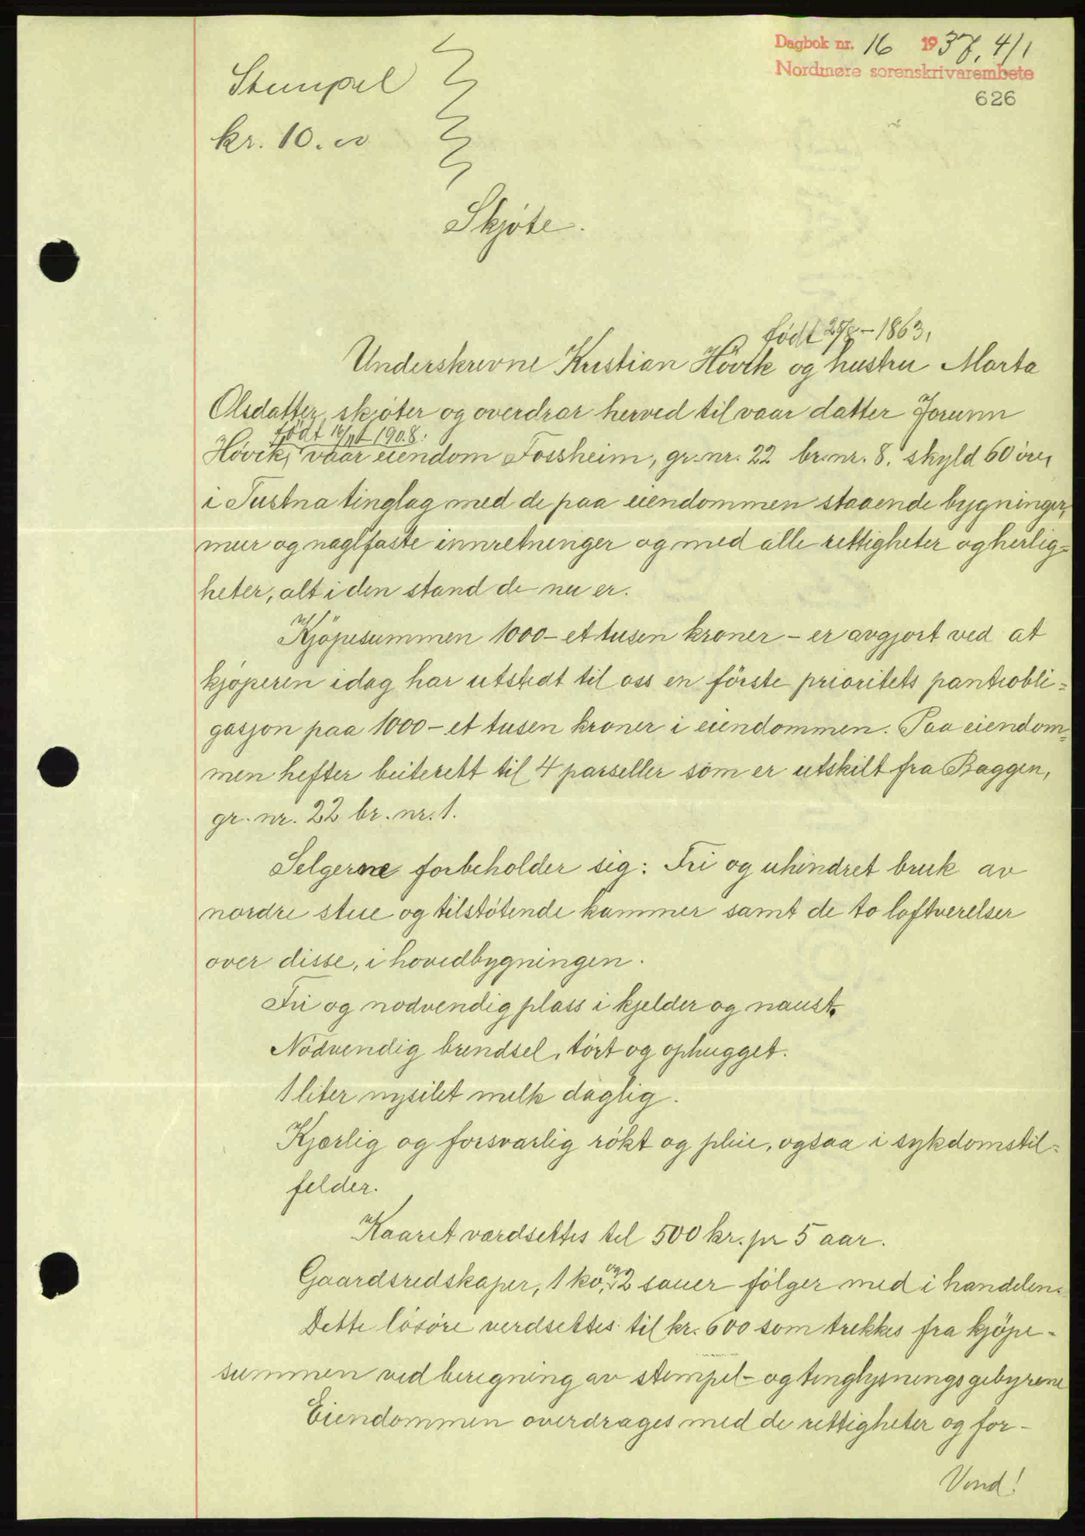 Dagbok nr. 16 1937, 4/1
Nordmøre sorenskrivarembete
626
Stempel
kr. 10.00
Skjøte.
født 28/8 - 1863,
Underskrevne Kristian Hövik og hustru Marta
Olsdatter, skjøter og overdrar herved til vaar datter Jorunn
født 16/11 1908.
Hövik, vaar eiendom Fossheim, gr.nr. 22 br.nr. 8. skyld 60 öre,
i Tustna tinglag med de paa eiendommen staaende bygninger,
mur og naglfaste innretninger og med alle rettigheter og herlig=
heter, alt i den stand de nu er.
Kjöpesummen 1000 - et tusen kroner - er avgjort ved at
kjøperen idag har utstedt til oss en förste prioritets pantobli=
gasjon paa 1000 - et tusen kroner i eiendommen. Paa eiendom=
men hefter beiterett til 4 parseller som er utskilt fra Baggen,
gr. nr. 22 br. nr. 1.
Selgerne forbeholder sig: Fri og uhindret bruk av
nordre stue og tilstøtende kammer samt de to loftverelser
over disse, i hovedbygningen.
Fri og nodvendig plass i kjelder og naust.
Nödvendig brendsel, tört og ophugget.
1 liter nysilet melk daglig.
Kjærlig og forsvarlig rökt og pleie, ogsaa i sykdomstil=
felder.
Kaaret værdsettes til 500 kr. pr 5 aar.
Gaardsredskaper, 1 ko, og 2 sauer fölger med i handelen.
Dette lösöre verdsettes til kr. 600 som trekkes fra kjöpe-
summen ved beregning av stempel- og tinglysningsgebyrene
Eiendommen overdrages med de rettigheter og for-
Vend!